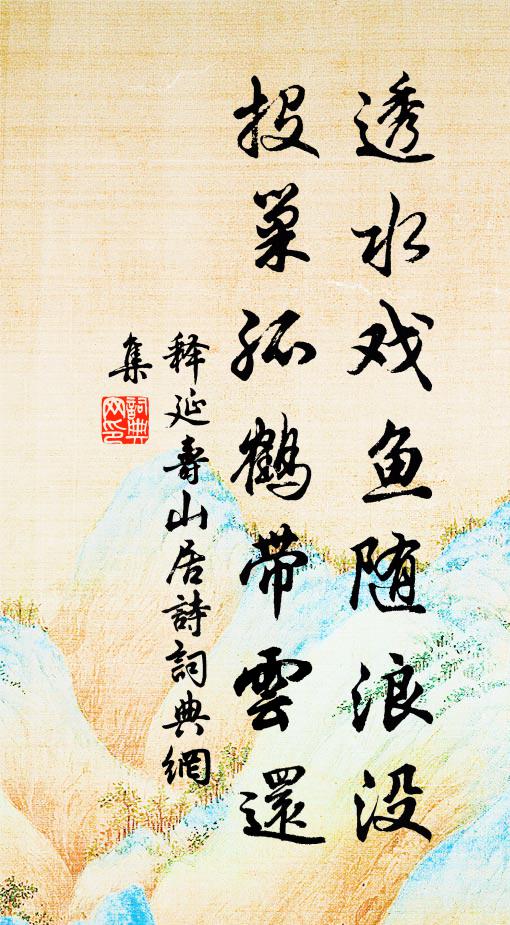 透水戏鱼随浪没
投巢孤鹤带雲還
释延壽山居詩詞典網
集
詞典
网印